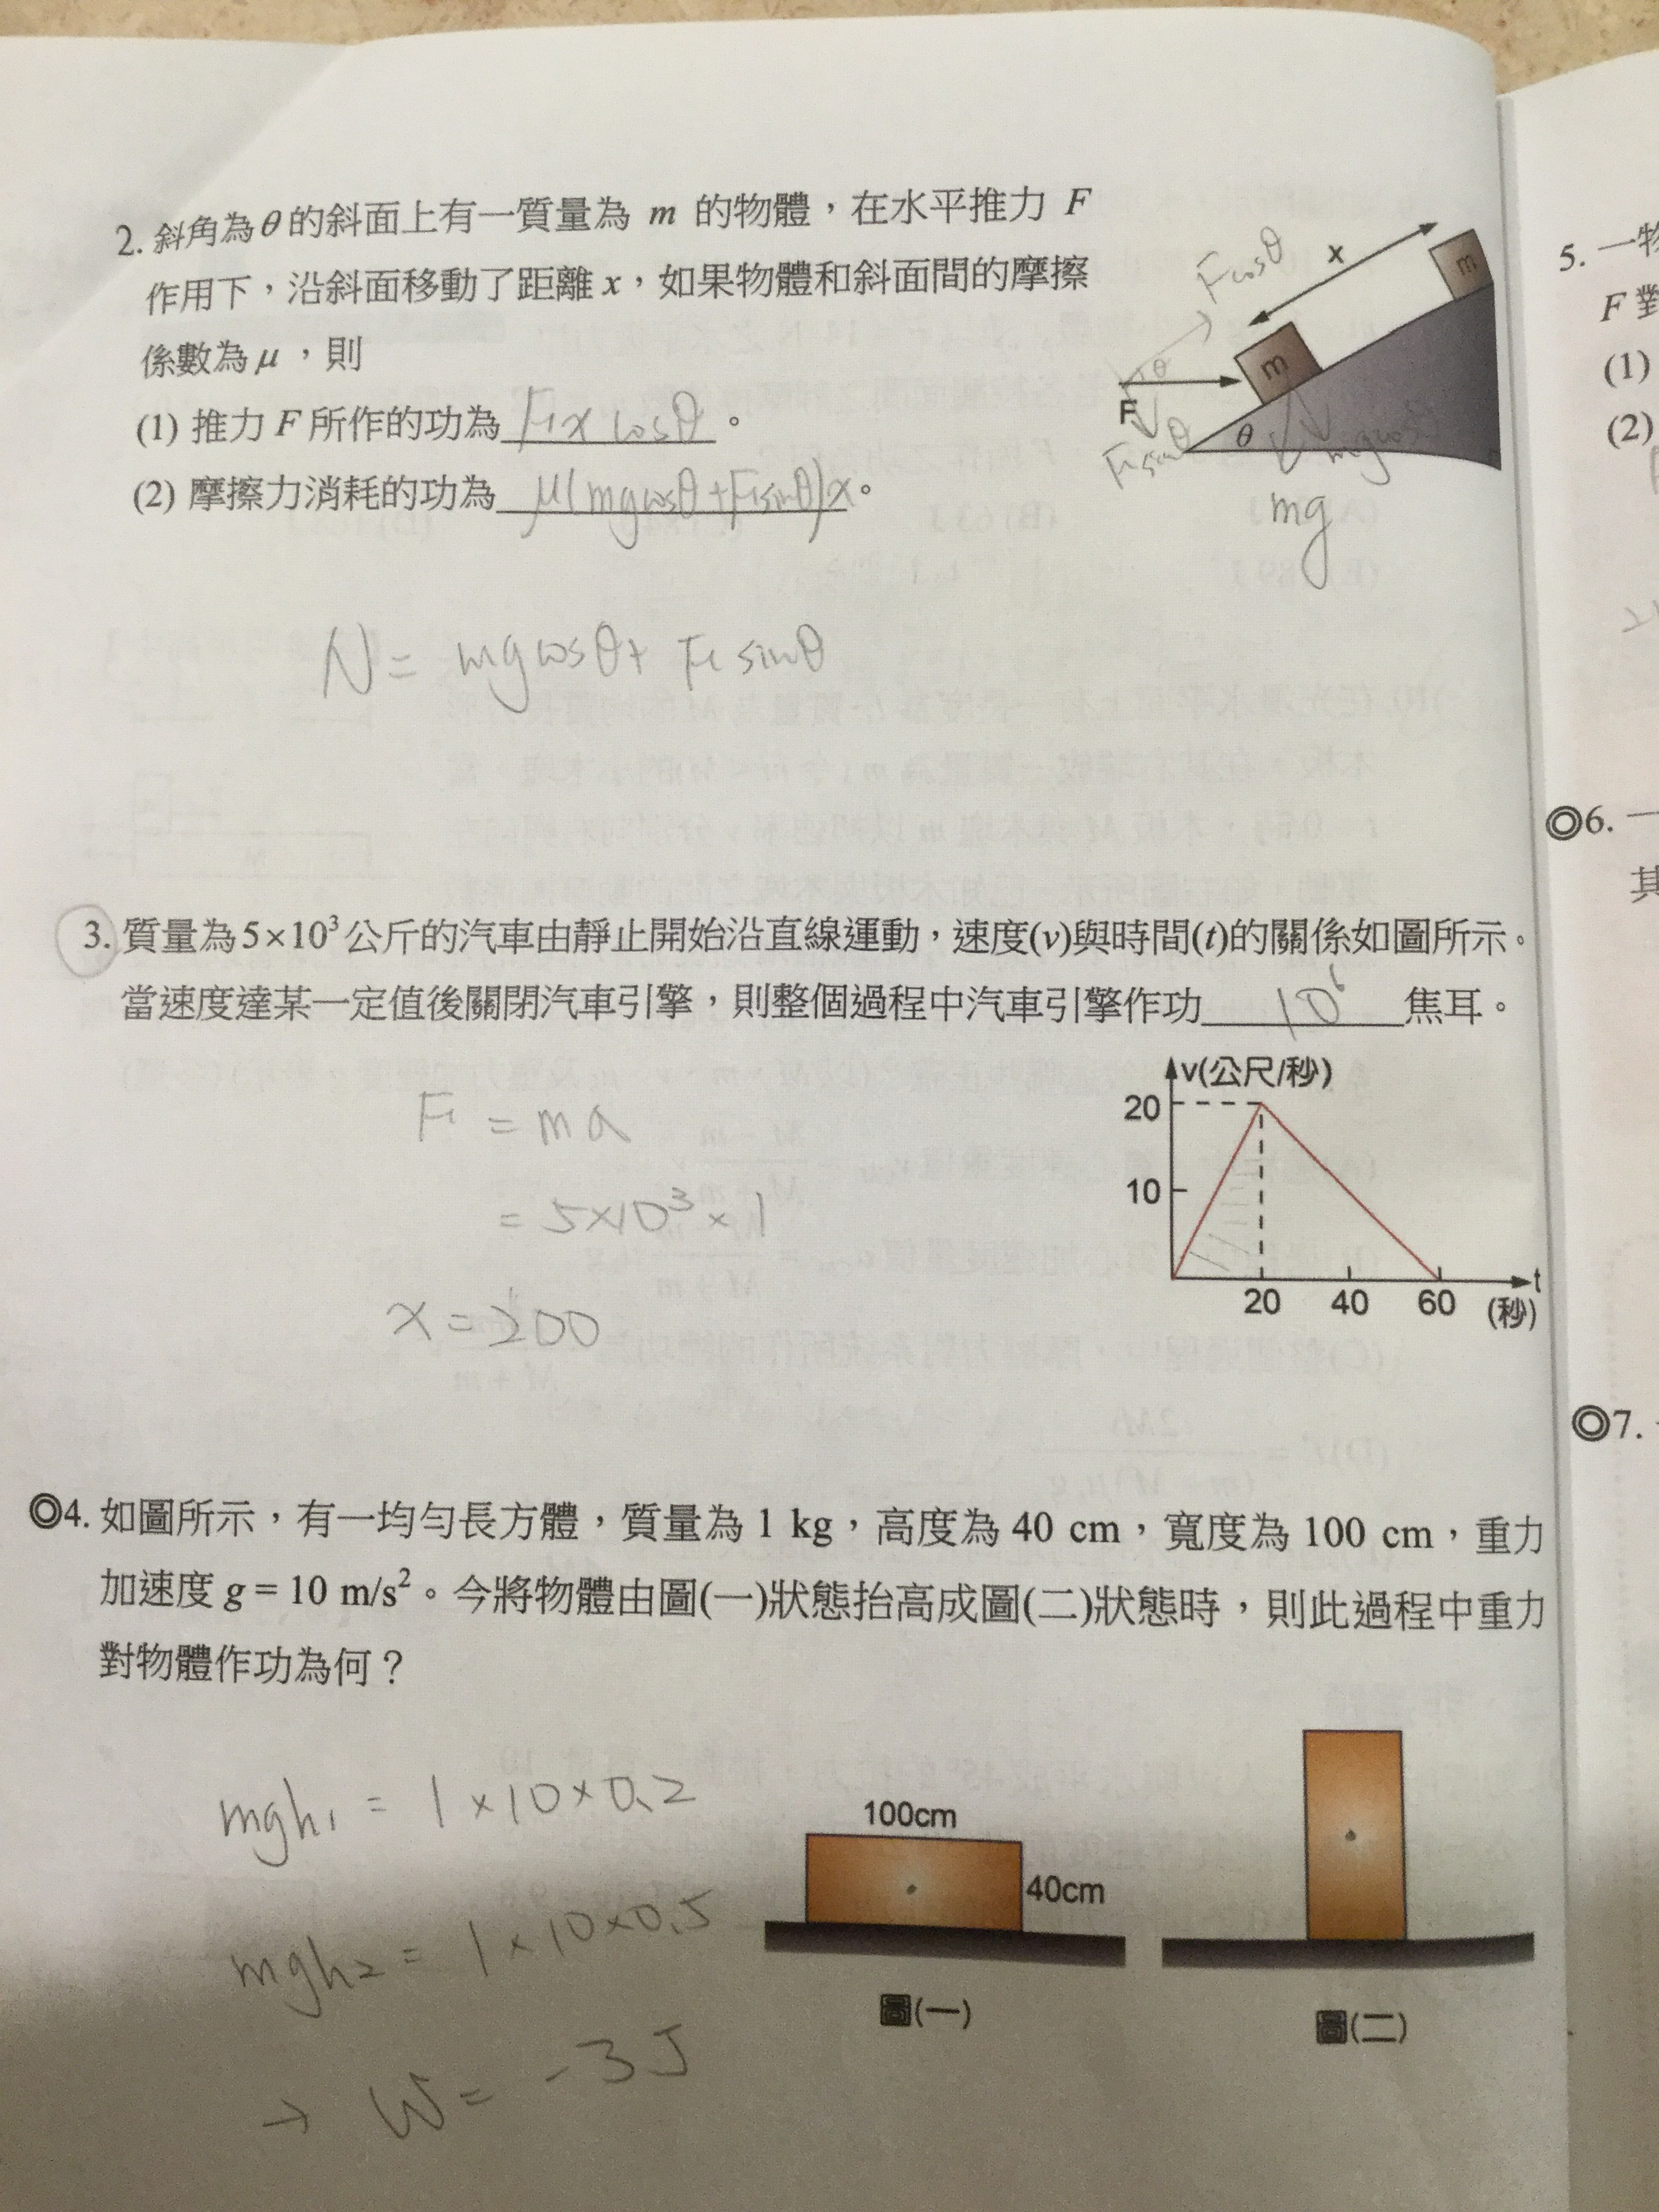 2. 斜角為θ的斜面上有一質量為 m 的物體，在水平推力 F
作用下，沿斜面移動了距離 x，如果物體和斜面間的摩擦
係數為 μ ，則
(1) 推力 F 所作的功為 Fx cosθ 。
(2) 摩擦力消耗的功為 μ(mgcosθ+Fsinθ)x 。
Fcosθ
x
m
m
θ
F
θ
Fsinθ
mgcosθ
mg
N = mgcosθ + F sinθ
3. 質量為5×10³公斤的汽車由靜止開始沿直線運動，速度(v)與時間(t)的關係如圖所示。
當速度達某一定值後關閉汽車引擎，則整個過程中汽車引擎作功 10⁶ 焦耳。
F = ma
= 5×10³×1
x = 200
v(公尺/秒)
20
10
20 40 60
t
(秒)
◎4. 如圖所示，有一均勻長方體，質量為 1 kg，高度為 40 cm，寬度為 100 cm，重力
加速度 g = 10 m/s²。今將物體由圖(一)狀態抬高成圖(二)狀態時，則此過程中重力
對物體作功為何？
mgh₁ = 1×10×0.2
mgh₂ = 1×10×0.5
→ W = -3J
100cm
40cm
圖(一)
圖(二)
5. 一物
F 對
(1)
(2)
◎6. 一
其
◎7.